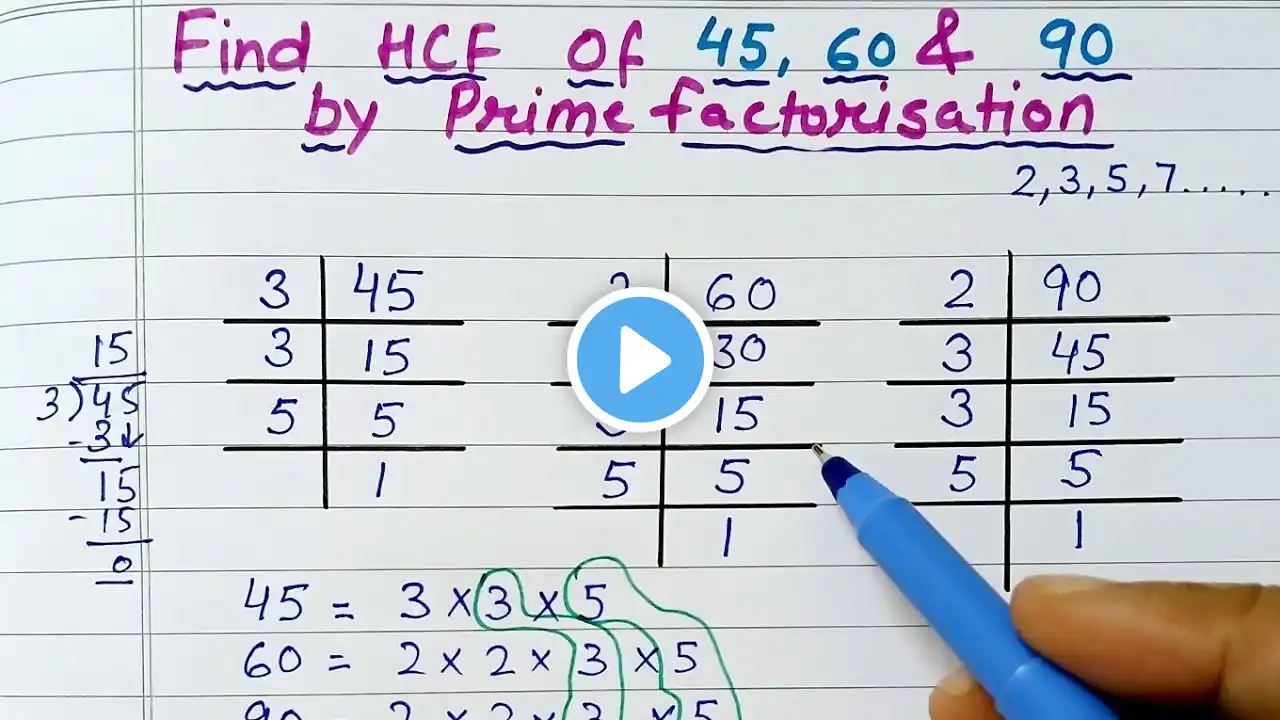 Find HCF of 45, 60 & 90
by Prime factorisation
2, 3, 5, 7.....
15
3)45
-3↓
15
-15
0
3 | 45
3 | 15
5 | 5
1
60
30
15
5 | 5
1
2 | 90
3 | 45
3 | 15
5 | 5
1
45 = 3 × 3 × 5
60 = 2 × 2 × 3 × 5